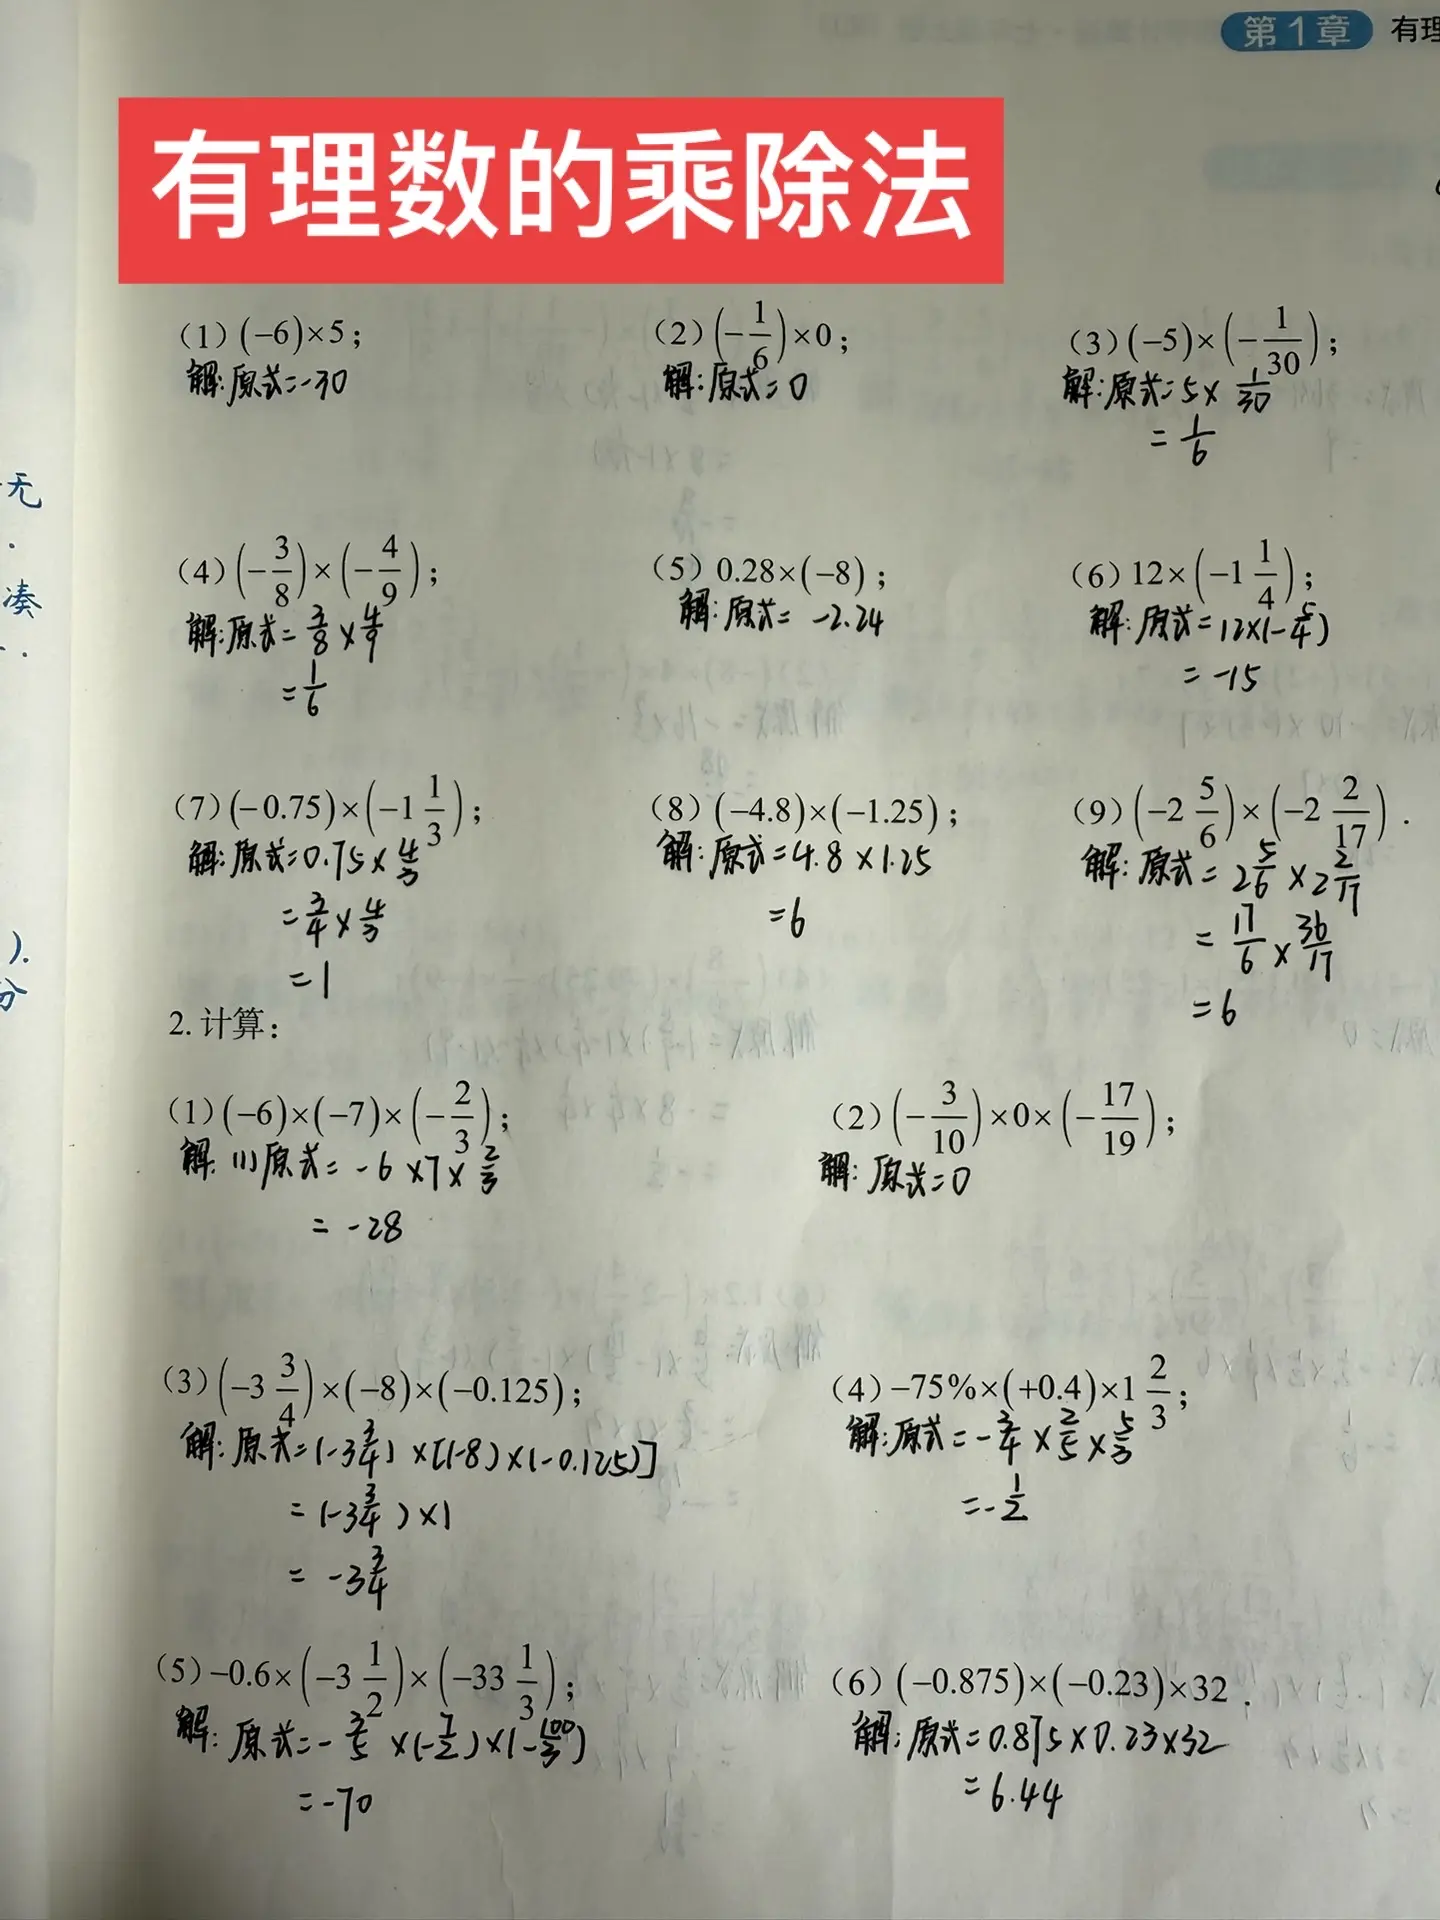 第1章 有理
有理数的乘除法
(1) (−6)×5；
解：原式=-30
(2) (−1/6)×0；
解：原式=0
(3) (−5)×(−1/30)；
解：原式=5×1/30
=1/6
无
凑
(4) (−3/8)×(−4/9)；
解：原式=3/8×4/9
=1/6
(5) 0.28×(−8)；
解：原式= -2.24
(6) 12×(−1 1/4)；
解：原式=12×(-5/4)
=-15
(7) (−0.75)×(−1 1/3)；
解：原式=0.75×4/3
=3/4×4/3
=1
(8) (−4.8)×(−1.25)；
解：原式=4.8×1.25
=6
(9) (−2 5/6)×(−2 2/17).
解：原式=2 5/6×2 2/17
=17/6×36/17
=6
).
分
2. 计算：
(1) (−6)×(−7)×(−2/3)；
解：(1)原式=-6×7×2/3
=-28
(2) (−3/10)×0×(−17/19)；
解：原式=0
(3) (−3 3/4)×(−8)×(−0.125)；
解：原式=(-3 3/4)×[(-8)×(-0.125)]
=(-3 3/4)×1
=-3 3/4
(4) −75%×(+0.4)×1 2/3；
解：原式=-3/4×2/5×5/3
=-1/2
(5) −0.6×(−3 1/2)×(−33 1/3)；
解：原式=-3/5×(-7/2)×(-100/3)
=-70
(6) (−0.875)×(−0.23)×32.
解：原式=0.875×0.23×32
=6.44